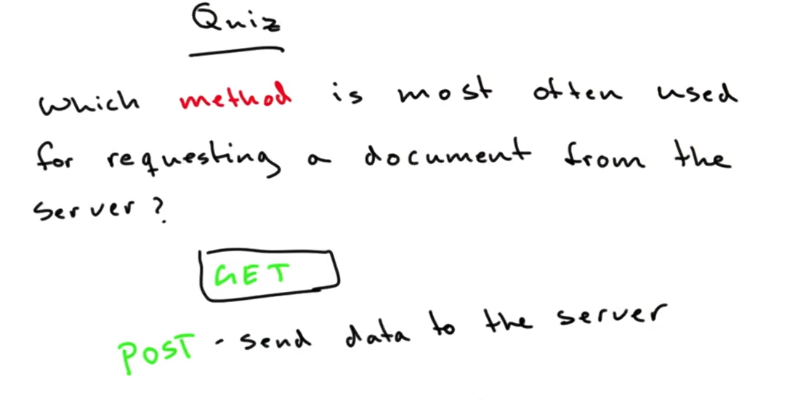 Quiz
Which method is most often used
for requesting a document from the
server?
GET
POST - send data to the server